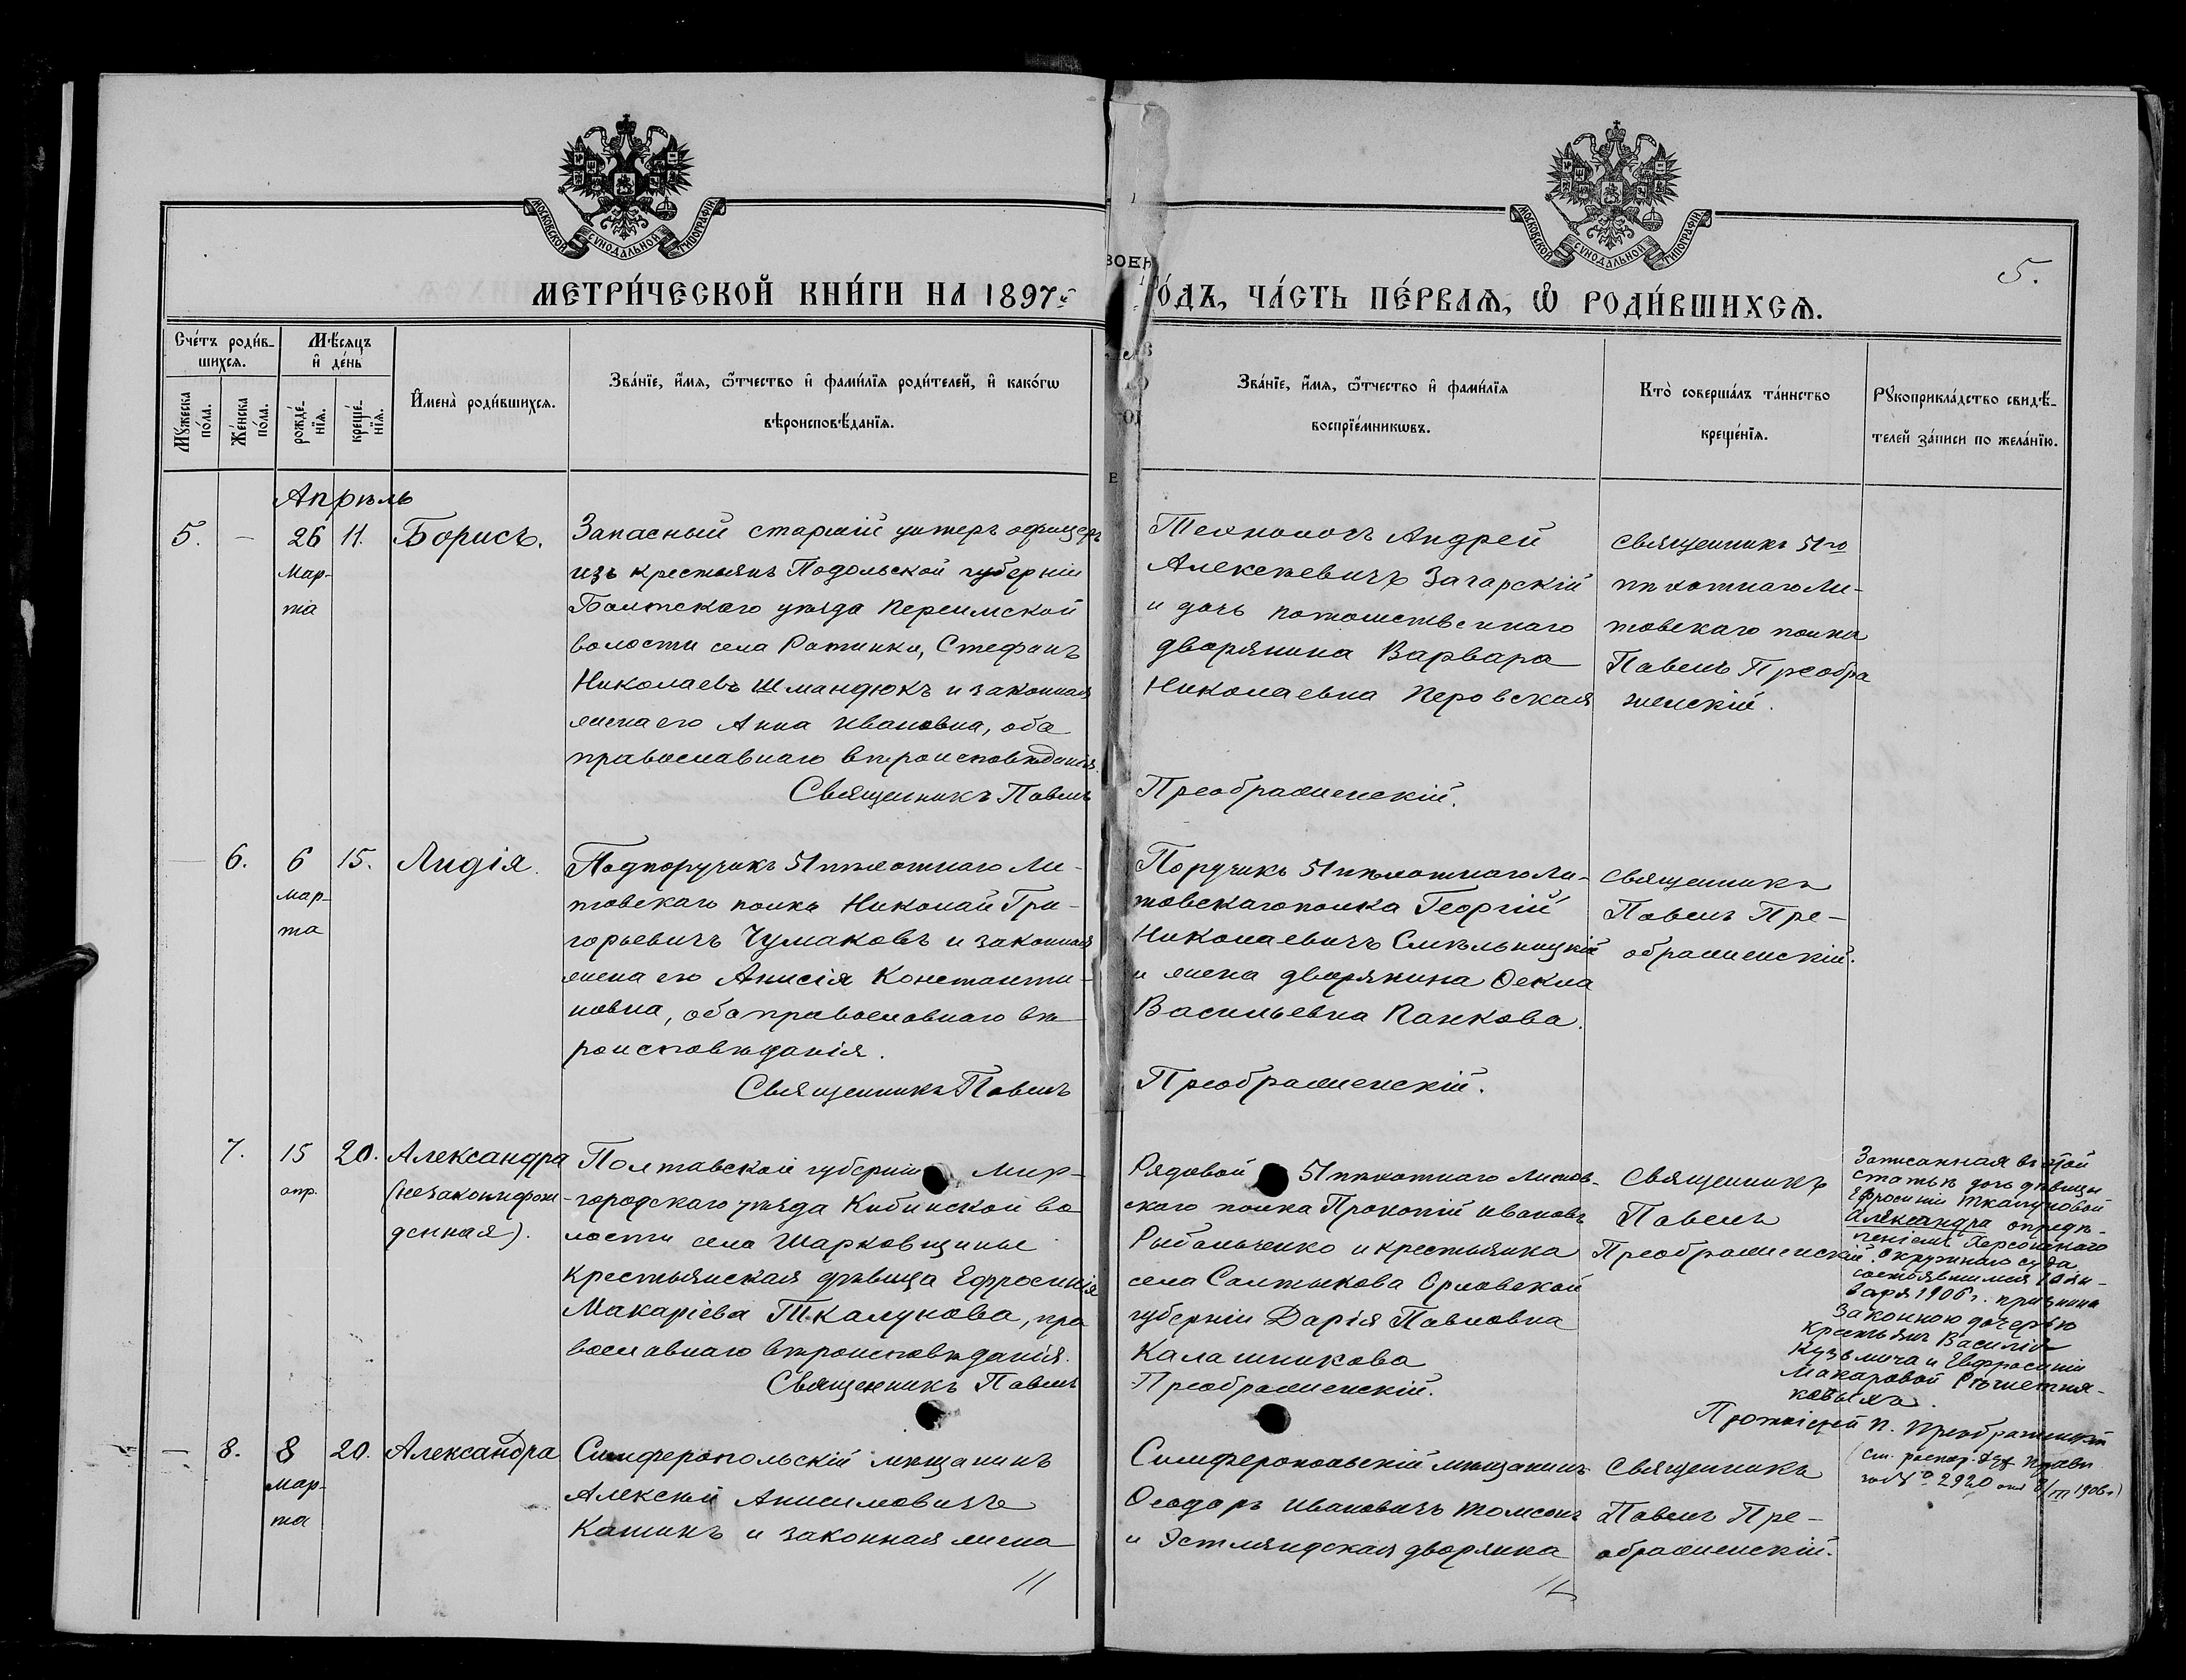 МОСКОВСКОЙ СУНОДАЛЬНОЙ ТИПОГРАФІИ
МОСКОВСКОЙ СУНОДАЛЬНОЙ ТИПОГРАФІИ
5.
МЕТРИ́ЧЕСКОЙ КНИ́ГИ НА 1897й
ГО́ДЪ, ЧА́СТЬ ПЕ́РВАѦ, Ѡ҆ РОДИ́ВШИХСѦ.
Сче́тъ роди́в-
шихсѧ.
Мѣ́сѧцъ
и҆ де́нь
Мꙋ́жеска
по́ла.
Же́нска
по́ла.
рожде́-
нїѧ.
креще́-
нїѧ.
И҆мена̀ роди́вшихсѧ.
Зва́нїе, и҆́мѧ, ѻ҆́тчество и҆ фами́лїѧ роди́телей, и҆ како́гѡ
вѣроисповѣ́данїѧ.
Зва́нїе, и҆́мѧ, ѻ҆́тчество и҆ фами́лїѧ
воспрїе́мникѡвъ.
Кто̀ соверша́лъ та́инство
креще́нїѧ.
Рꙋкоприкла́дство свидѣ́-
телей за́писи по жела́нїю.
Апрѣль
5.
—
26
Мар-
та
11.
Борисъ.
Запасный старшій унтеръ офицеръ
изъ крестьянъ Подольской губерніи
Балтскаго уѣзда
волости села Стефанъ
Николаевъ Шмандюкъ и законная
жена его Анна Ивановна, оба
православнаго вѣроисповѣданія.
Священникъ Павелъ
Технологъ Андрей
Алексѣевичъ Загарскій
и дочь потомственнаго
дворянина Варвара
Николаевна Перовская
Преображенскій.
Священникъ 51го
пѣхотнаго Ли-
товскаго полка
Павелъ Преобра
женскій.
6.
6
мар-
та
15.
Лидія.
Подпоручикъ 51 пѣхотнаго Ли-
товскаго полка Николай Гри-
горьевичъ Чумаковъ и законная
жена его Анисія Константи-
новна, оба православнаго вѣ-
роисповѣданія.
Священникъ Павелъ
Поручикъ 51 пѣхотнаго Ли-
товскаго полка Георгій
Николаевичъ Смѣльницкій
и жена дворянина Ѳекла
Васильевна Панкова.
Преображенскій.
Священникъ
Павелъ Пре-
ображенскій.
7.
15
апр.
20.
Александра
(незаконнорож-
денная).
Полтавской губерніи Мир-
городскаго уѣзда Кибинской во
лости села Шарковщины
крестьянская дѣвица Ефросинія
Макаріева Ткалунова, пра
вославнаго вѣроисповѣданія.
Священникъ Павелъ
Рядовой 51 пѣхотнаго Литов-
скаго полка Прокопій Ивановъ
Рыбальченко и крестьянка
села Салтыкова Орловской
губерніи Дарія Павловна
Калашникова
Преображенскій.
Священникъ
Павелъ
Преображенскій.
Записанная въ этой
статьѣ дочь дѣвицы
Ефросиніи Ткалуновой
Александра опредѣ-
леніемъ Херсонскаго
Окружнаго суда
состоявшимся 10 ян-
варя 1906 г. признана
законною дочерью
крестьянъ Василія
Кузьмича и Евфросиніи
Макаровой Рѣшетня-
ковыхъ.
Протоіерей П. Преображенскій
2920 1906 г)
—
8.
8
мар-
та
20.
Александра
Симферопольскій мѣщанинъ
Алексѣй Анисимовичъ
Катинъ и законная жена
Симферопольскій мѣщанинъ
Ѳеодоръ Ивановичъ Томсонъ
и Эстляндская дворянка
Священникъ
Павелъ Пре-
ображенскій.